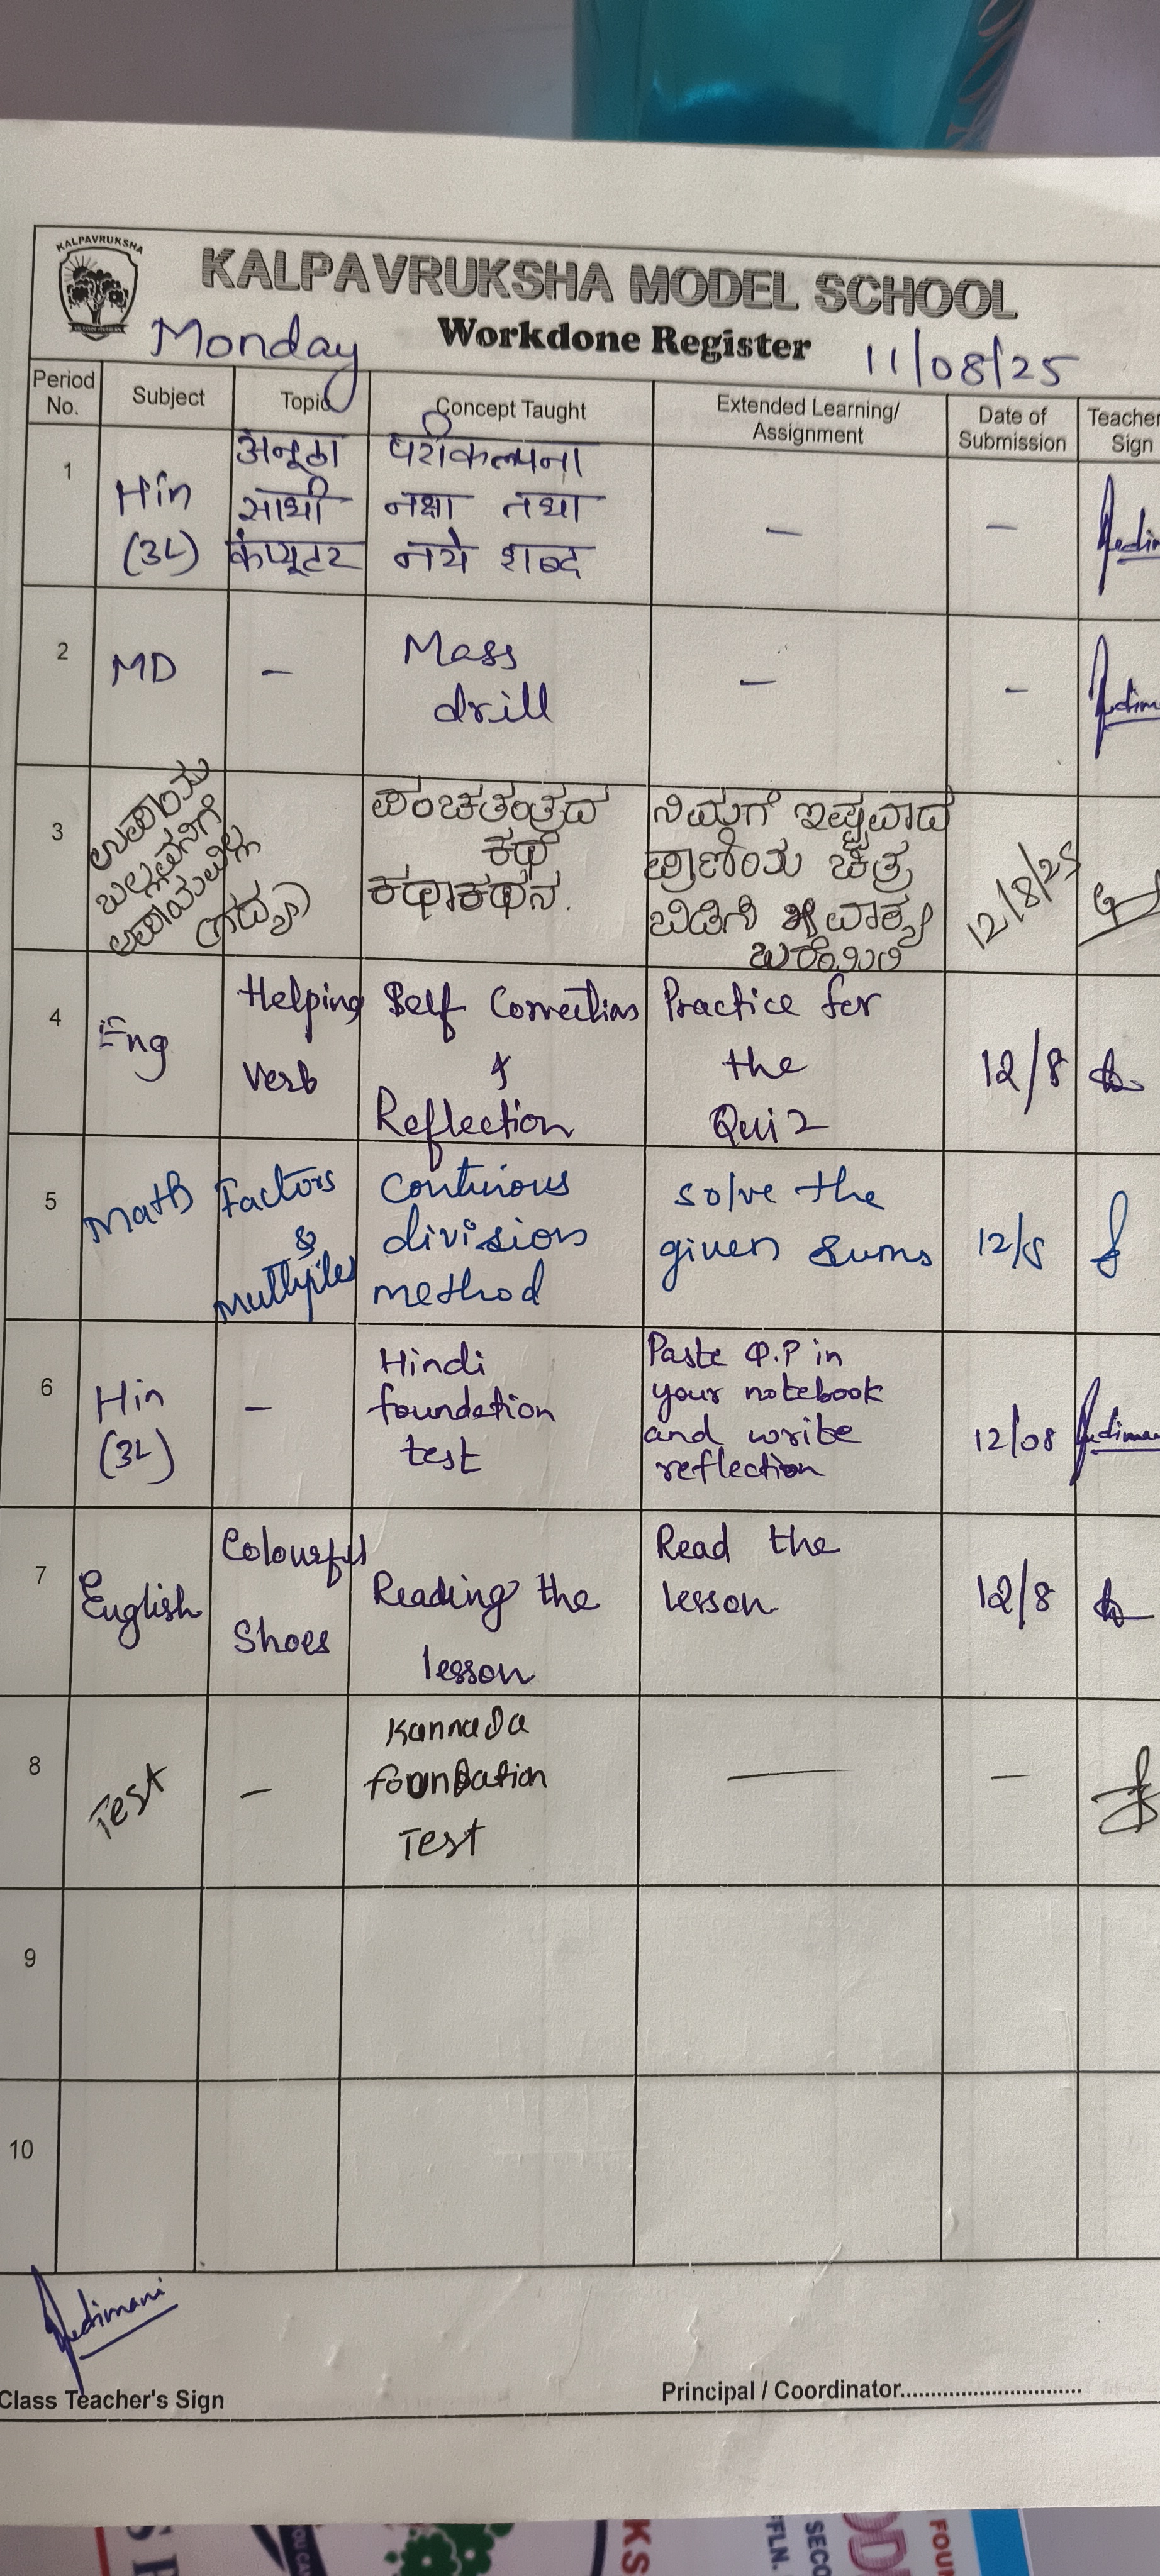 KALPAVRUKSHA
KALPAVRUKSHA MODEL SCHOOL
Workdone Register
Monday
11/08/25
Period No.
Subject
Topic
Concept Taught
Extended Learning/
Assignment
Date of
Submission
Teacher
Sign
1
Hin
(3L)
अनूठा
साथी
कंप्यूटर
परीकल्पना
नक्षा तथा
नये शब्द
-
-
2
MD
-
Mass
drill
-
-
3
ಉಪಾಯ
ಬಲ್ಲವನಿಗೆ
ಅಪಾಯವಿಲ್ಲ
(ಗದ್ಯ)
ಪಂಚತಂತ್ರದ
ಕಥೆ
ಕಥಾಕಥನ.
ನಿಮಗೆ ಇಷ್ಟವಾದ
ಪ್ರಾಣಿಯ ಚಿತ್ರ
ಬಿಡಿಸಿ ವಾಕ್ಯ
ಬರೆಯಿರಿ
12/8/25
4
Eng
Helping
Verb
Self Correction
&
Reflection
Practice for
the
Quiz
12/8
5
Math
Factors
&
multiples
Continous
division
method
solve the
given sums
12/8
6
Hin
(3L)
-
Hindi
foundation
test
Paste Q.P in
your notebook
and write
reflection
12/08
7
English
Colourful
Shoes
Reading the
lesson
Read the
lesson
12/8
8
Test
-
Kannada
foundation
Test
-
-
9
10
Class Teacher's Sign
Principal / Coordinator..............................
KS
FFLN.
SECO
FOUR